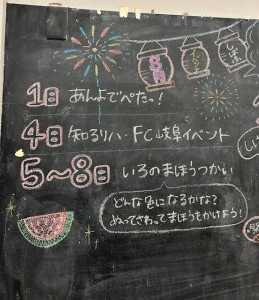 8月
イベント
1日 あんよでぺたっ!
4日 知るリハ・FC岐阜イベント
5〜8日 いろのまほうつかい
どんな色になるかな?
ぬってさわってまほうをかけよう!